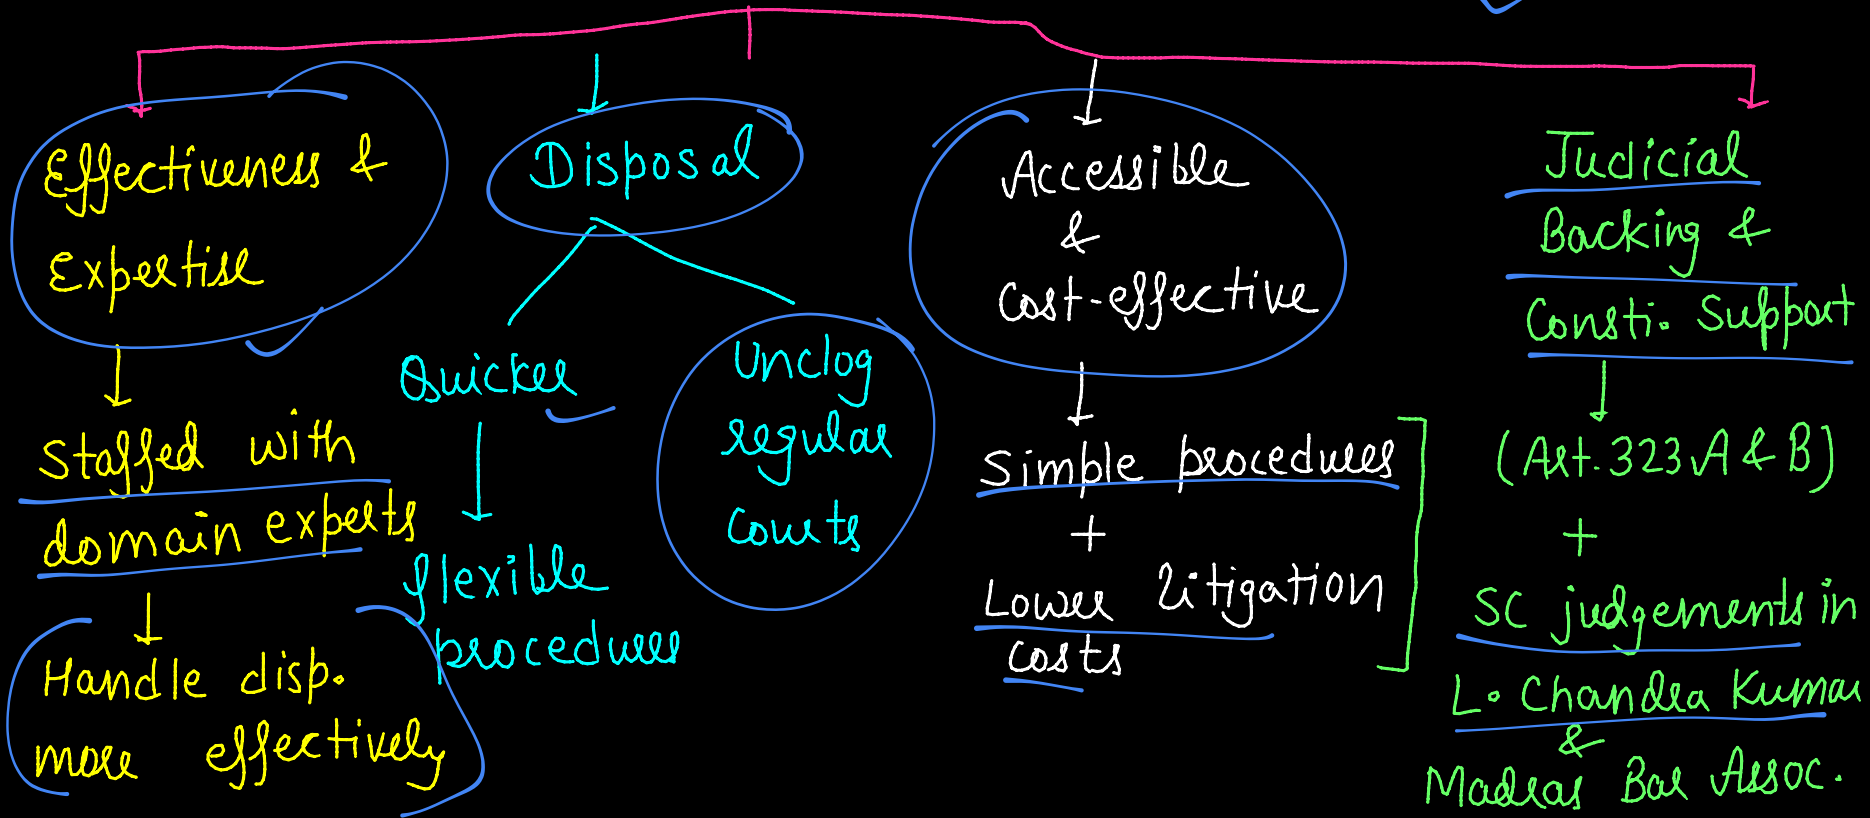 Effectiveness &
Expertise
Staffed with
domain experts
Handle disp.
more effectively
Disposal
Quicker
flexible
procedures
Unclog
regular
courts
Accessible
&
Cost-effective
Simple procedures
+
Lower litigation
costs
Judicial
Backing &
Consti. Support
(Art. 323 A & B)
+
SC judgements in
L. Chandra Kumar
&
Madras Bar Assoc.